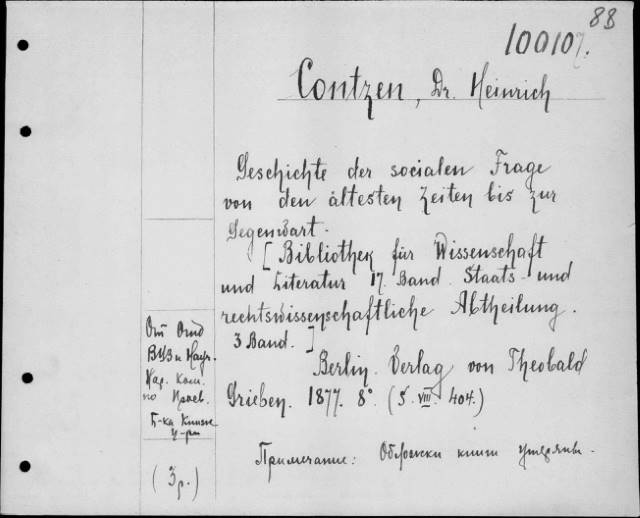 88
100107.
Contzen, Dr. Heinrich
Geschichte der socialen Frage
von den ältesten Zeiten bis zur
Gegenwart.
[Bibliothek für Wissenschaft
und Literatur 17. Band. Staats- und
rechtswissenschaftliche Abtheilung.
3 Band.]
Berlin. Verlag von Theobald
Grieben. 1877. 8°. (5. VIII. 404.)
От Отд
ВУЗ и Науч.
Нар. Ком.
по Просв.
Б-ка Книж
(3р.)
Примечание: книги утеряны.